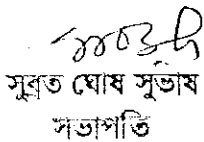 সুব্রত ঘোষ সুভাষ
সভাপতি